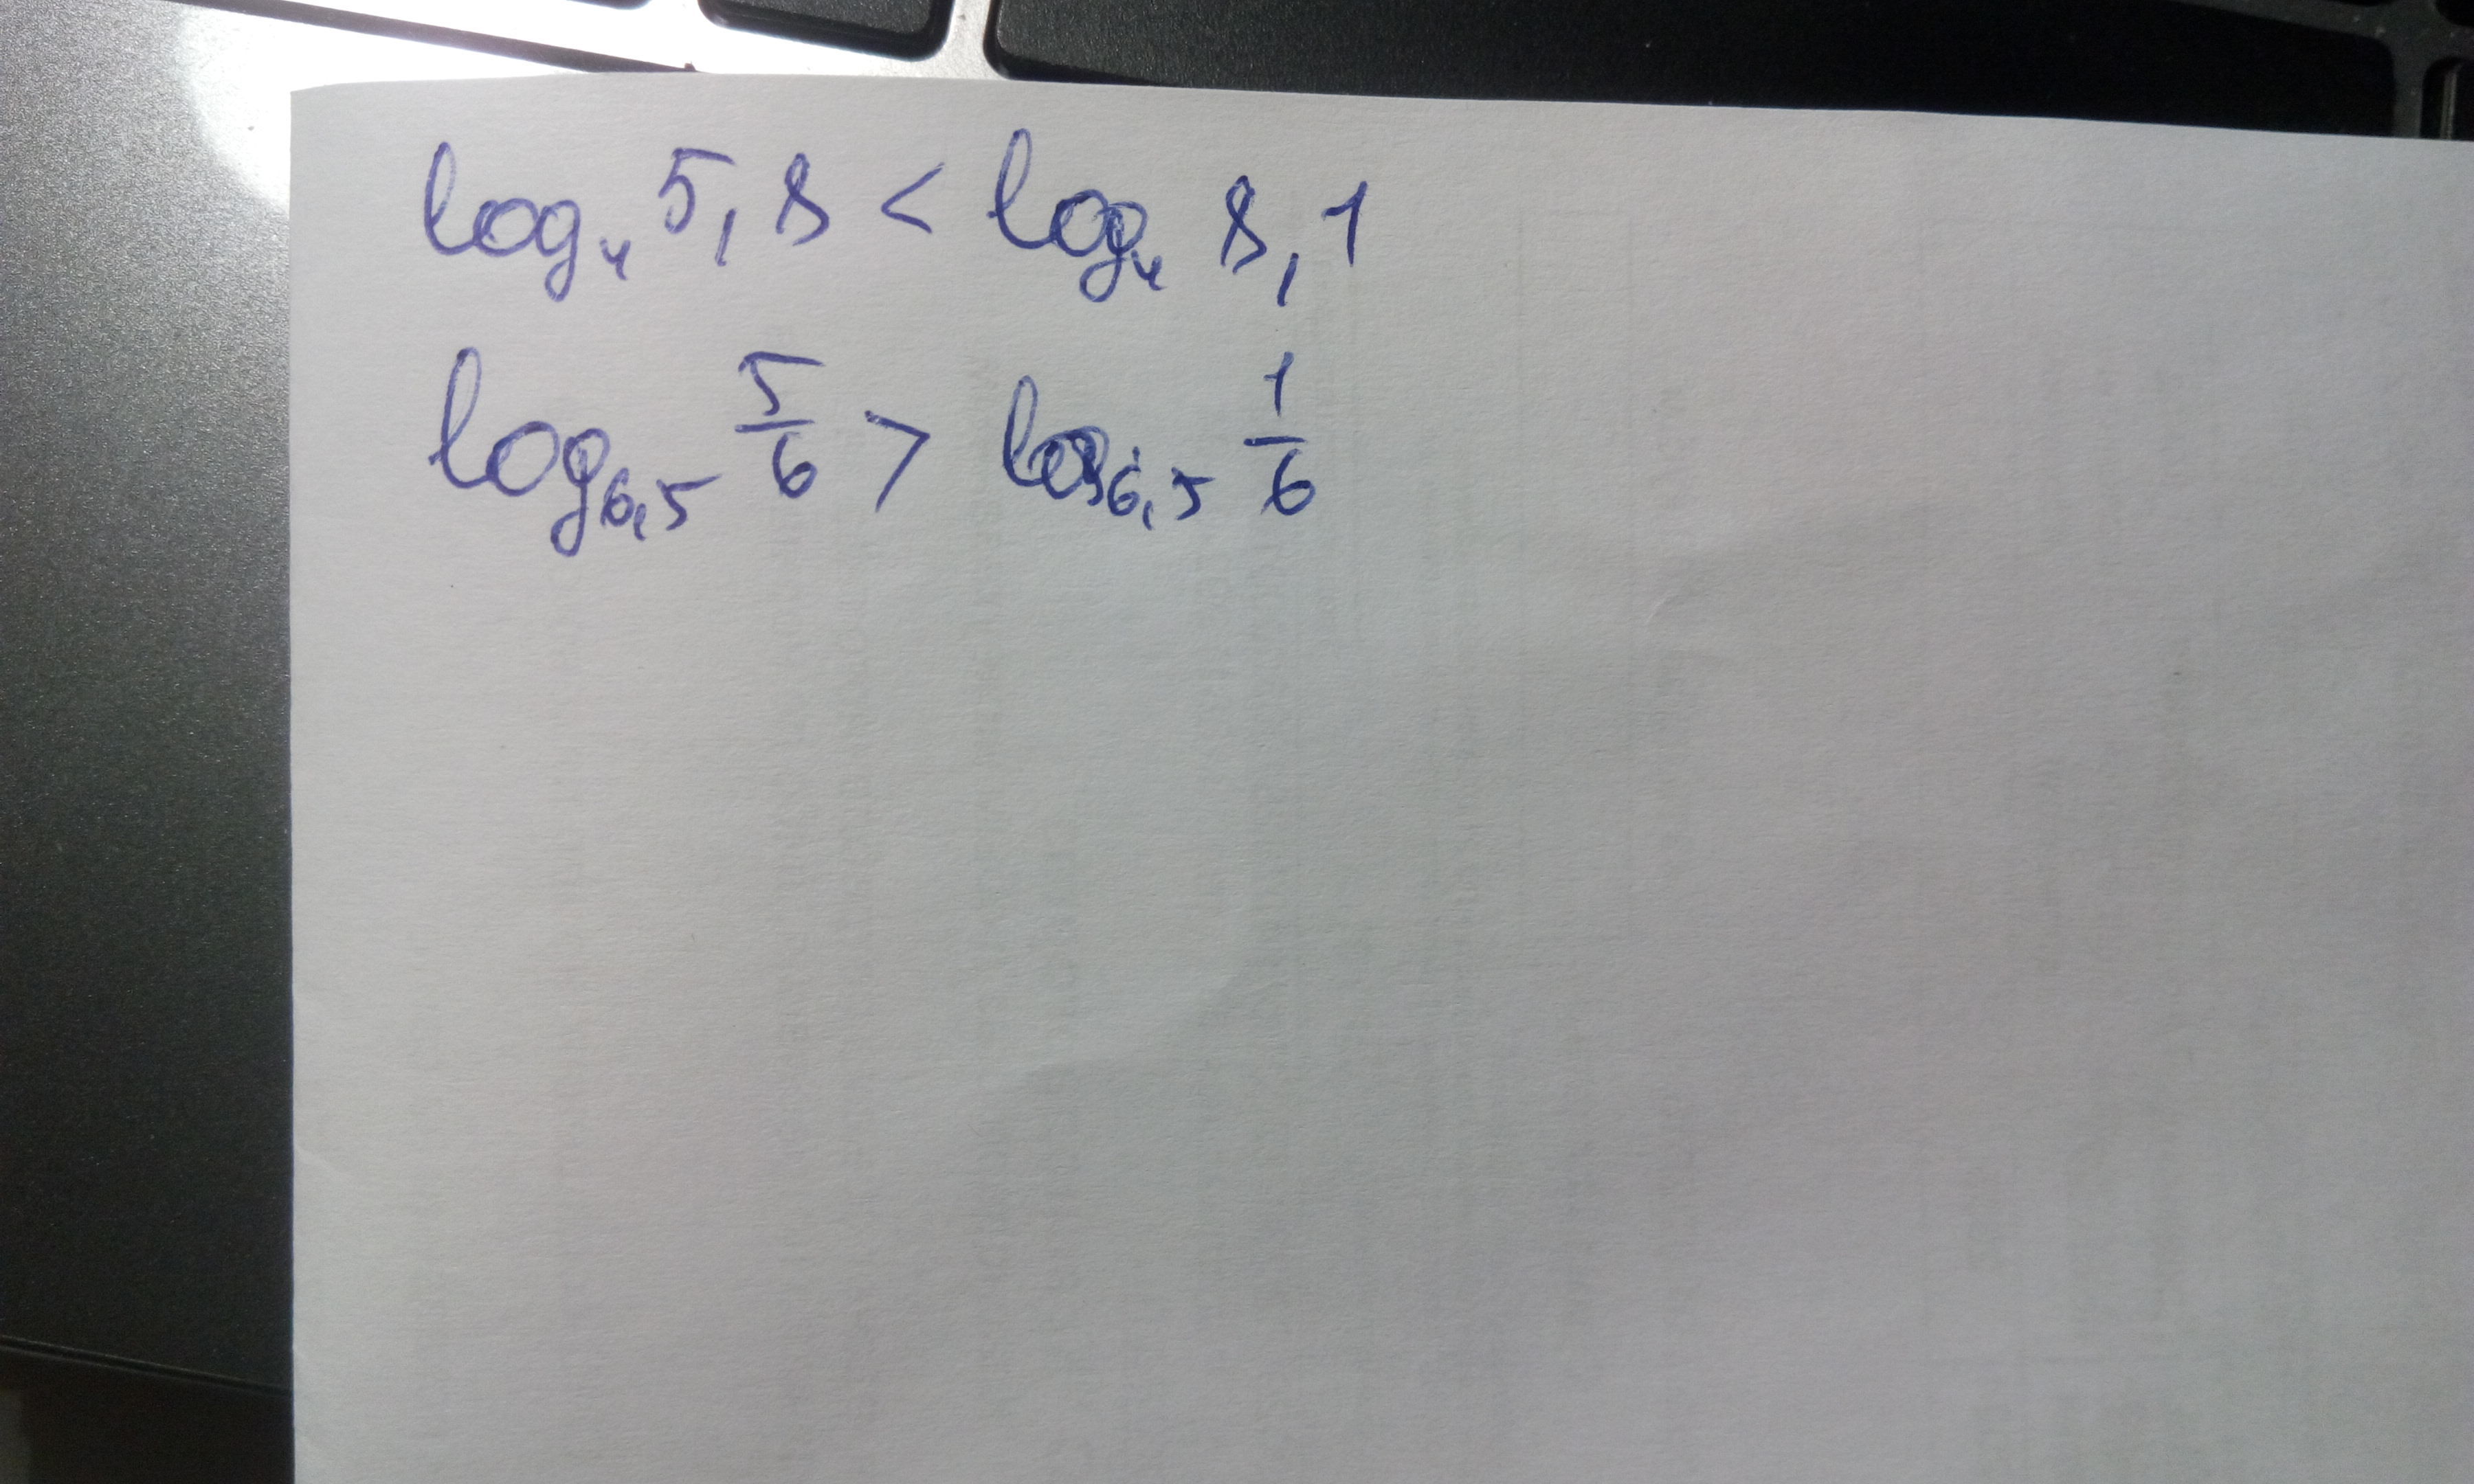 log₄ 5,8 < log₄ 8,1
log₆,₅ 5/6 > log₆,₅ 1/6